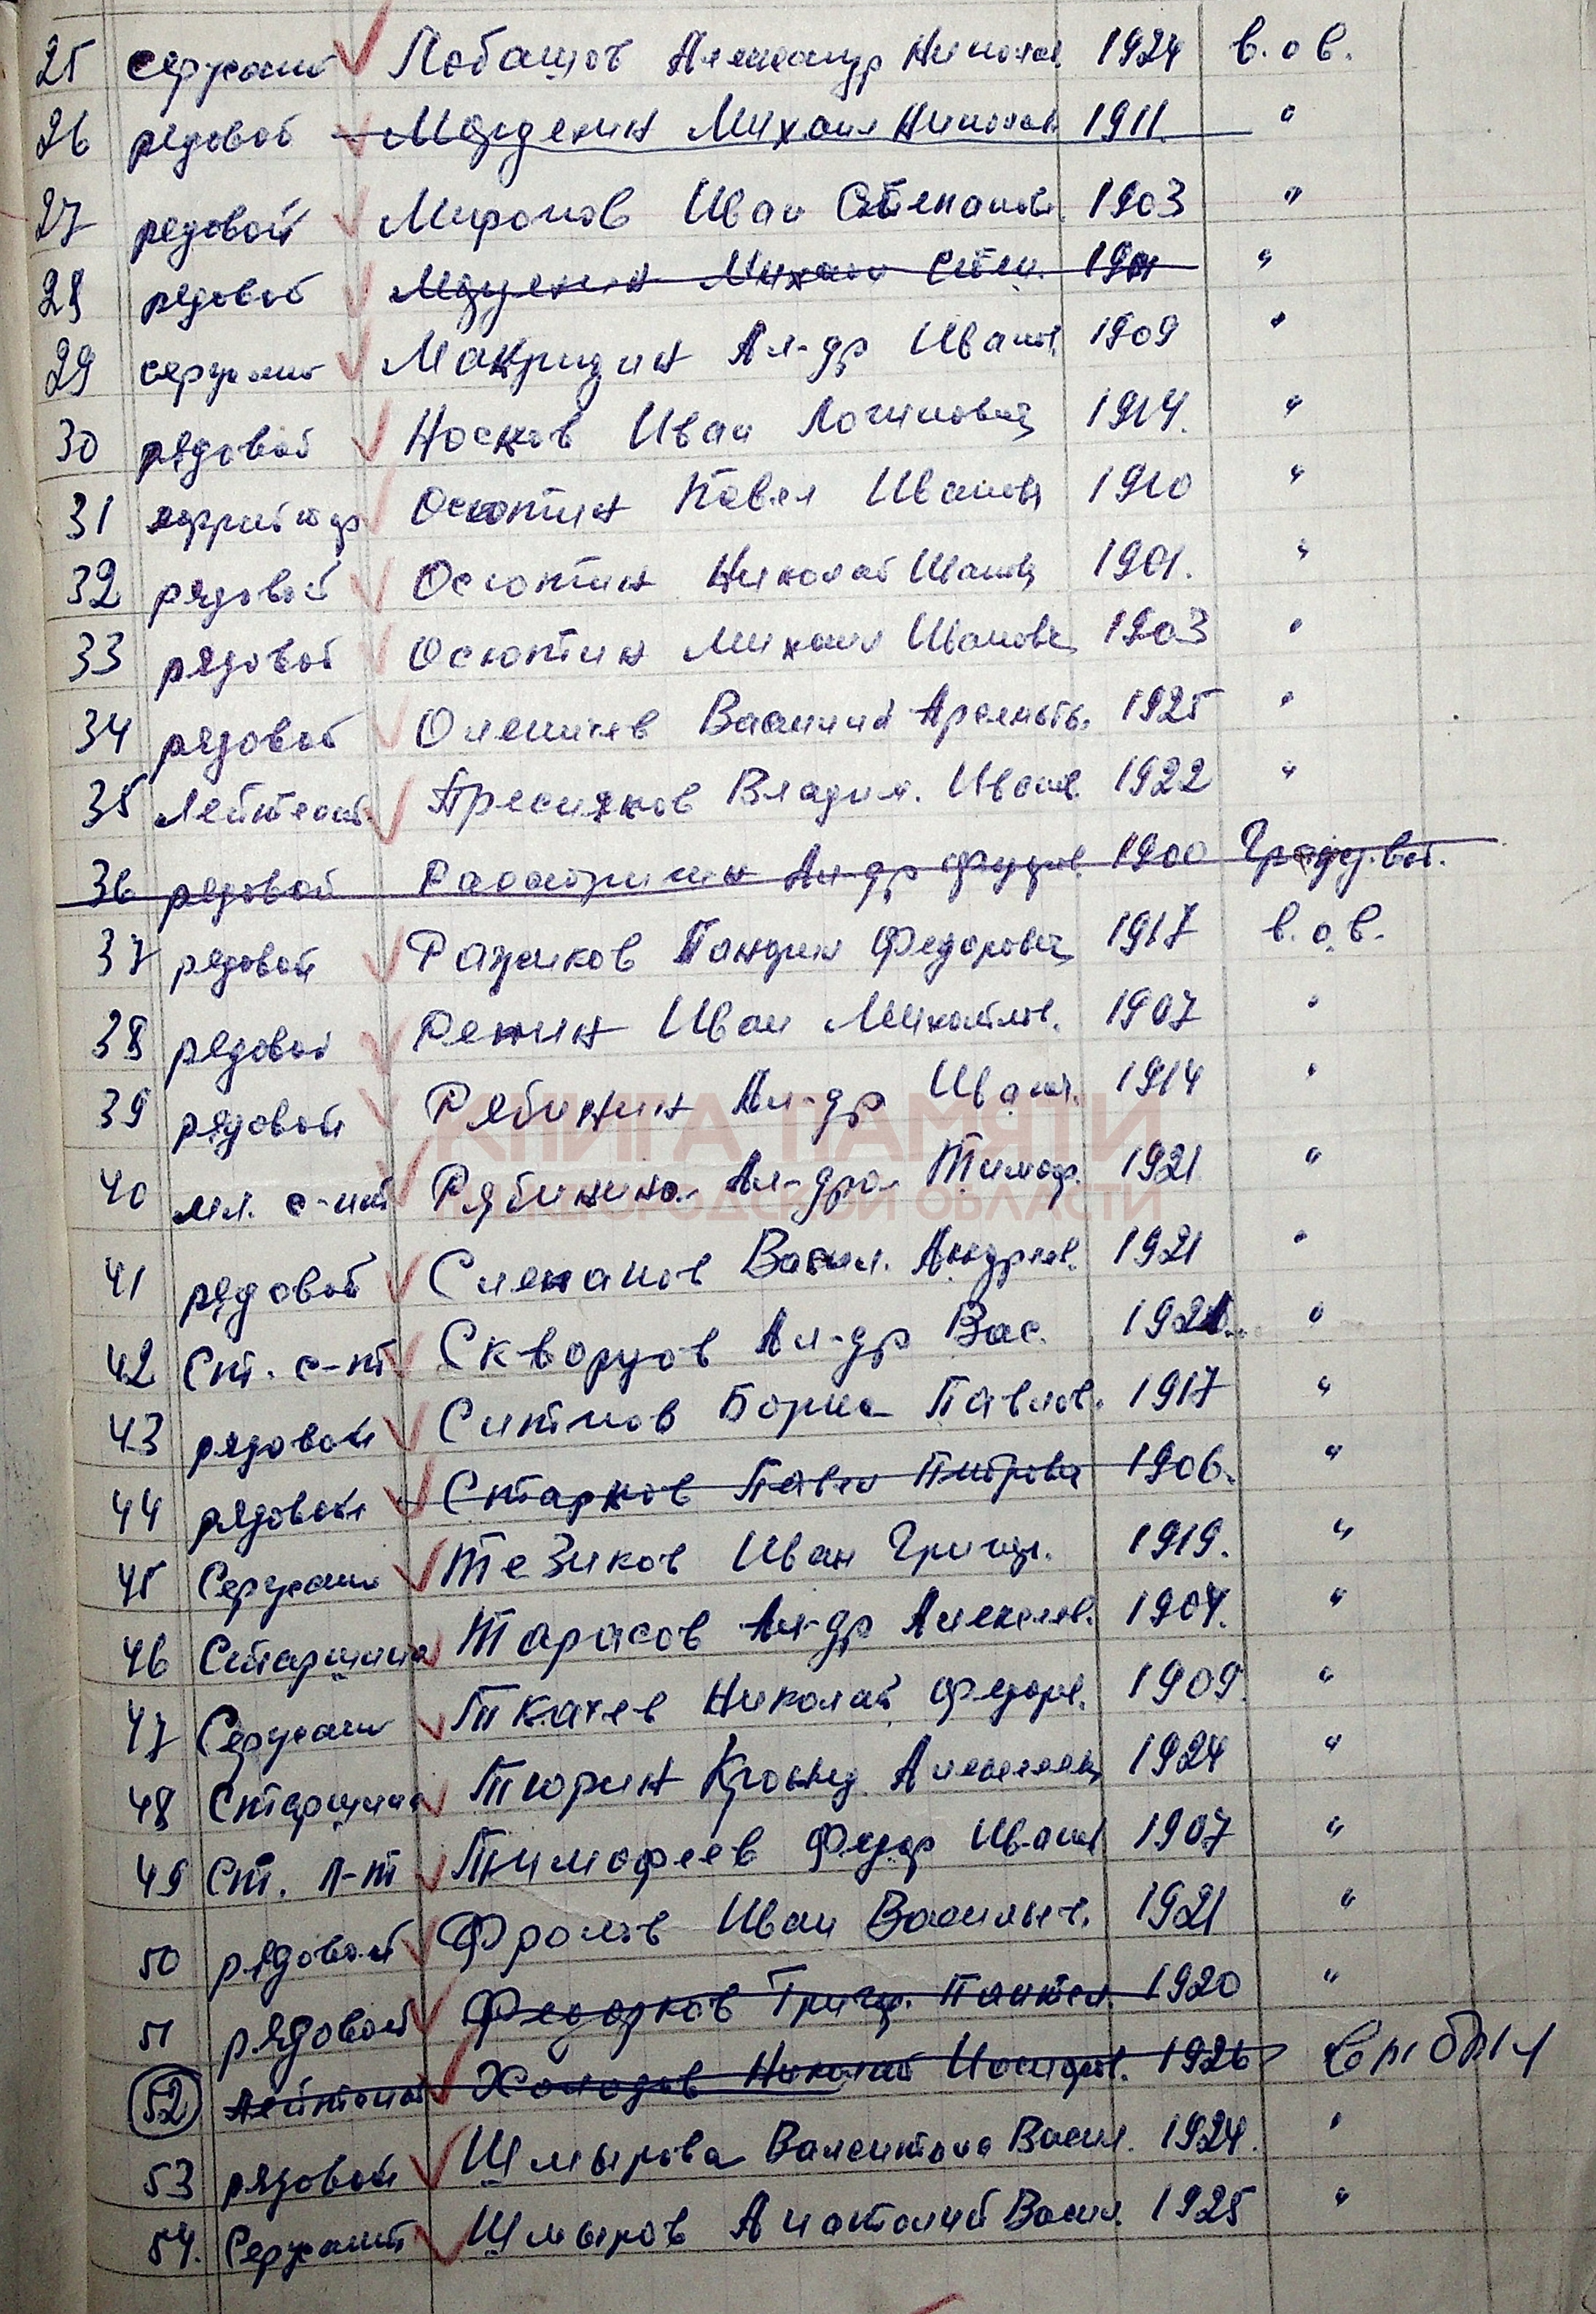 25 сержант Лобащов Александр Никола. 1924 в.о.в.
26 рядовой Мордекин Михаил Николаев 1911. "
27 рядовой Миронов Иван Степанов. 1903 "
28 рядовой Михаил Степ. "
29 сержант Макридин Ал-др Иванов. 1909 "
30 рядовой Носков Иван Логинович 1914. "
31 ефрейтор Осютин Павел Иванов 1910 "
32 рядовой Осютин Николай Иванов 1901. "
33 рядовой Осютин Михаил Иванович 1903 "
34 рядовой Олешнев Василий 1925 "
35 Лейтенант Пресняков Владим. Иванов. 1922 "
36 рядовой Ал-др Федоров. 1900 Гражд. вой.
37 рядовой Разжиков Федорович 1917 в.о.в.
38 рядовой Репин Иван Михайлов. 1907 "
39 рядовой Рябинин Ал-др Иван. 1914 "
КНИГА ПАМЯТИ
40 мл. с-нт Рябинина Ал-дра Тимоф. 1921 "
НИЖЕГОРОДСКОЙ ОБЛАСТИ
41 рядовой Слепанов Васил. Андреев. 1921 "
42 Ст. с-нт Скворцов Ал-др Вас. "
43 рядовой Ситнов Борис Павлов. 1917 "
44 рядовой Старков Павел Петрович 1906. "
45 Сержант Тезиков Иван Григор. 1919. "
46 Старшина Тарасов Ал-др Алексеев. 1904. "
47 Сержант Ткачев Николай Федоров. 1909. "
48 Старшина Тюрин Алексеевич 1924 "
49 Ст. л-т Тимофеев Федор Иванов 1907 "
50 рядовой Фролов Иван Васильев. 1921 "
51 рядовой Федорков Григор. Пантел. 1920 "
52 Лейтенант Холодов Николай Иосифов. 1926 выбыл
53 рядовой Шмырова Валентина Васил. 1924. "
54. Сержант Шмыров Анатолий Васил. 1925 "